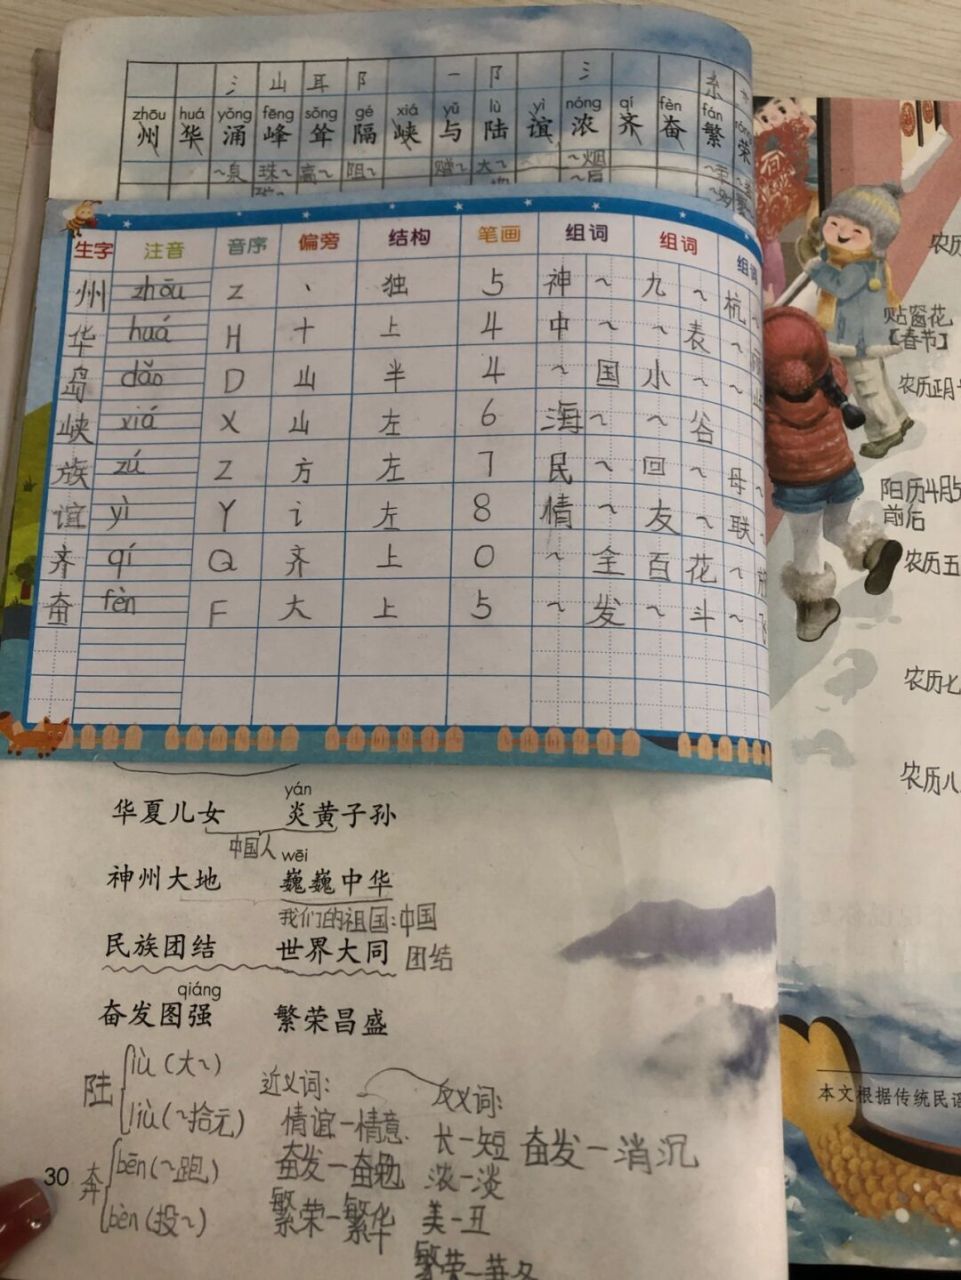 氵 山 耳 阝 一 阝 氵 糸
zhōu huá yǒng fēng sǒng gé xiá yǔ lù yì nóng qí fèn fán róng
州 华 涌 峰 耸 隔 峡 与 陆 谊 浓 齐 奋 繁 荣
~泉 珠~ 高~ 阻~ 赠~ 大~ ~烟
~厚
生字 注音 音序 偏旁 结构 笔画 组词 组词 组词
州 zhōu Z 丶 独 5 神~ 九~ 杭~
华 huá H 十 上 4 中~ ~表 ~
岛 dǎo D 山 半 4 ~国 小~ ~
峡 xiá X 山 左 6 海~ ~谷
族 zú Z 方 左 7 民~ 回~ 母~
谊 yì Y 讠 左 8 情~ 友~ 联~
齐 qí Q 齐 上 0 ~全 百花~放
奋 fèn F 大 上 5 ~发 ~斗 ~飞
yán
华夏儿女 炎黄子孙
中国人
wēi
神州大地 巍巍中华
我们的祖国:中国
民族团结 世界大同 团结
qiáng
奋发图强 繁荣昌盛
陆 lù(大~)
liù(~拾元)
奔 bēn(~跑)
bèn(投~)
近义词:
情谊-情意
奋发-奋勉
繁荣-繁华
反义词:
长-短 奋发-消沉
浓-淡
美-丑
繁荣-萧条
30
农历
贴窗花
【春节】
农历正月
阳历4月5
前后
农历五
农历七
农历八
本文根据传统民谣